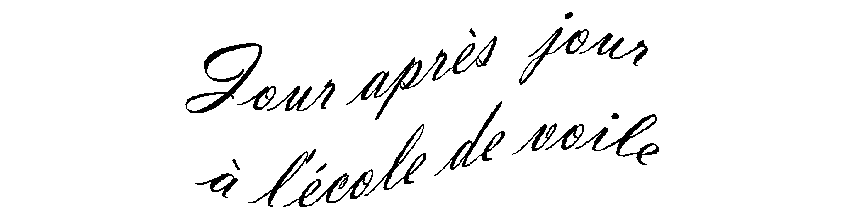 Jour après jour
à l'école de voile